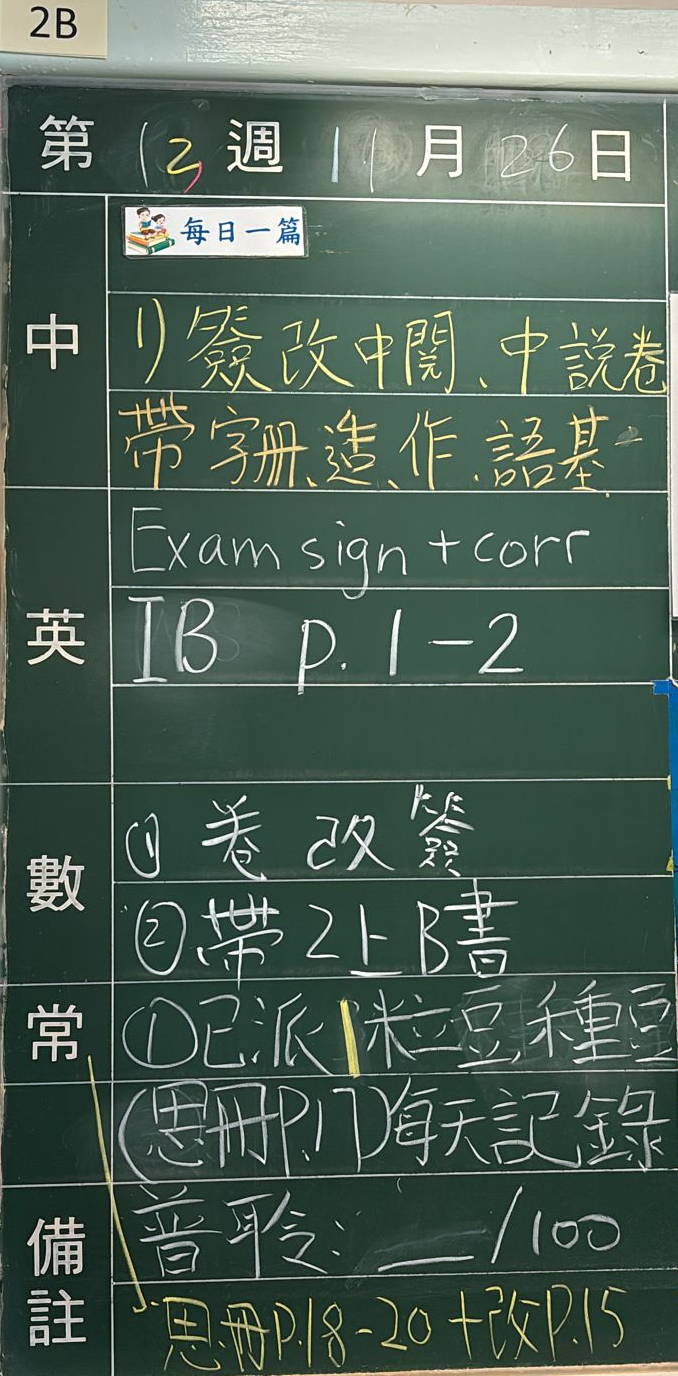 2B
第 12 週 11 月 26 日
每日一篇
中
1) 簽改中閱、中說卷
帶字冊、造、作、語基
英
Exam sign + corr
IB p. 1-2
數
① 卷改簽
② 帶2上B書
常
①已派1粒豆,種豆
(思冊P.17)每天記錄
備註
普聆: __/100
思冊P.18-20+改P.15